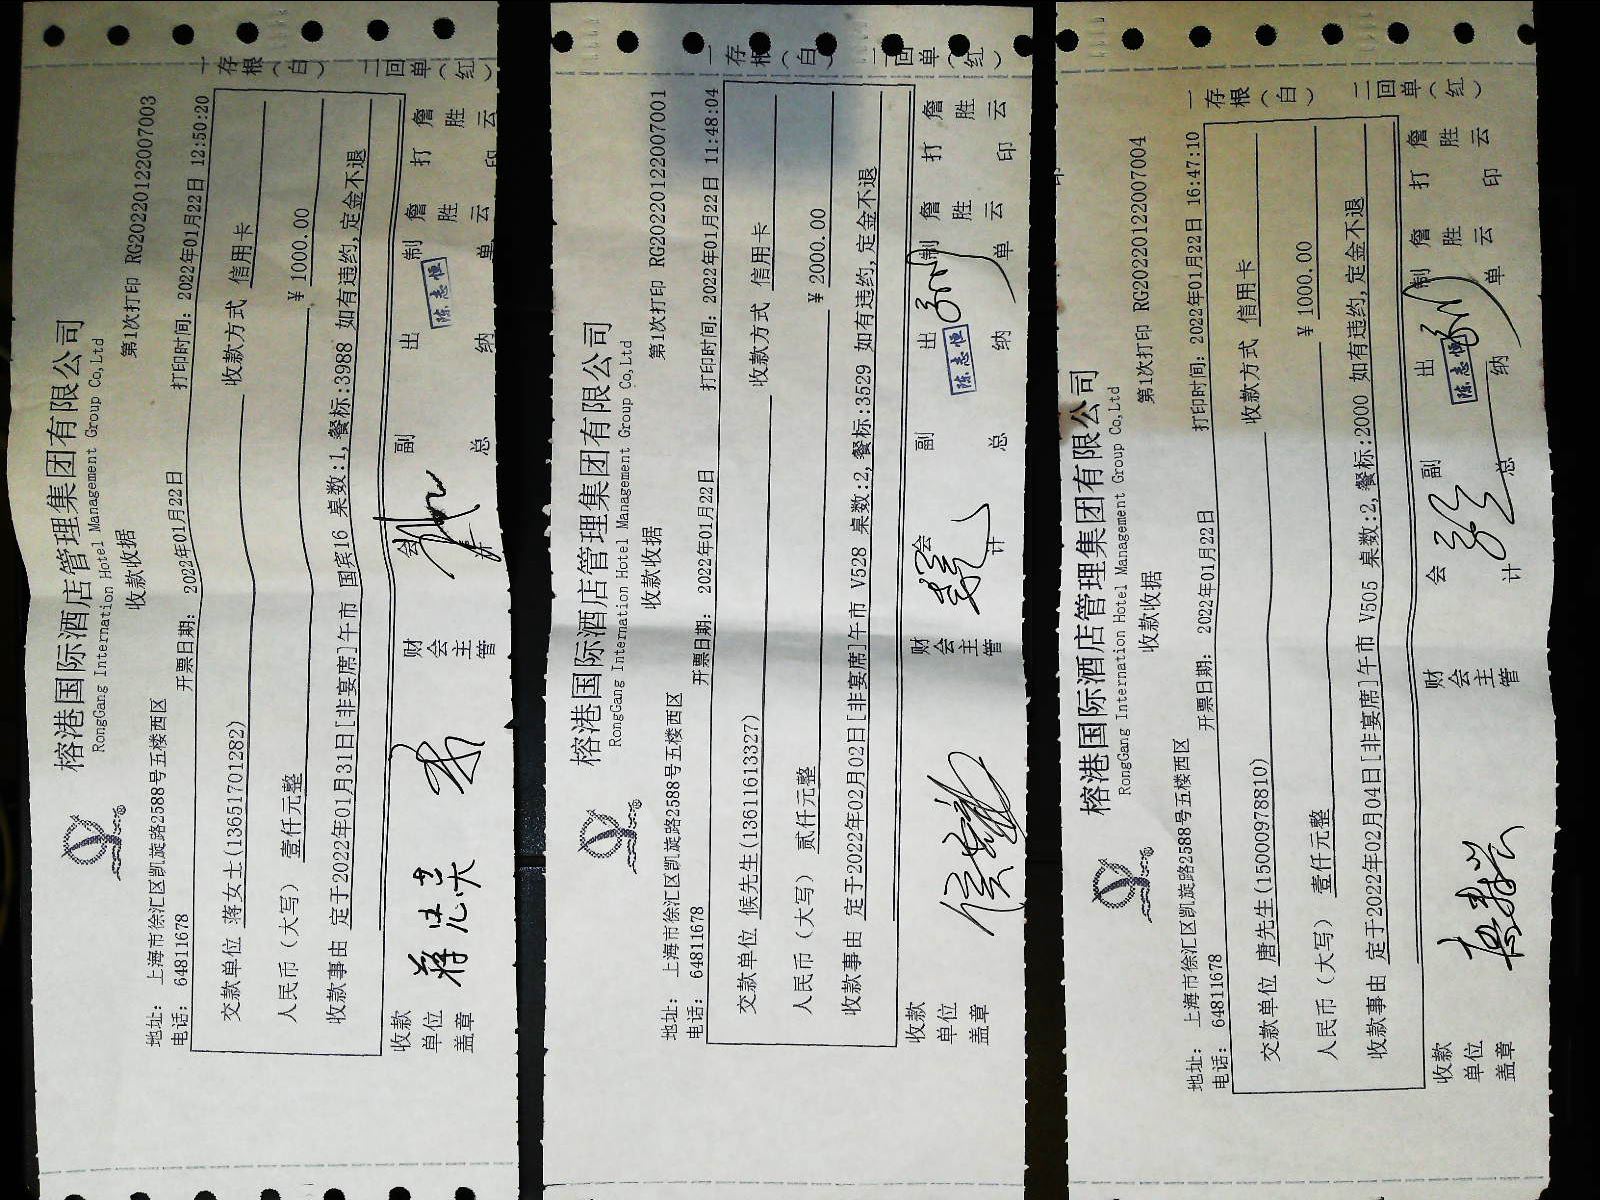 榕港国际酒店管理集团有限公司
RongGang International Hotel Management Group Co,Ltd
收款收据
第1次打印 RG20220122007003
地址: 上海市徐汇区凯旋路2588号五楼西区
电话: 64811678
开票日期: 2022年01月22日
打印时间: 2022年01月22日 12:50:20
交款单位 蒋女士(13651701282)
收款方式 信用卡
人民币（大写） 壹仟元整
￥1000.00
收款事由 定于2022年01月31日[非宴席]午市 国宾16 桌数:1,餐标:3988 如有违约,定金不退
收款单位盖章
财会主管
会计
副总
出纳
陈志恒
制单 詹胜云
打印 詹胜云
一存根(白)
二回单(红)
榕港国际酒店管理集团有限公司
RongGang International Hotel Management Group Co,Ltd
收款收据
第1次打印 RG20220122007001
地址: 上海市徐汇区凯旋路2588号五楼西区
电话: 64811678
开票日期: 2022年01月22日
打印时间: 2022年01月22日 11:48:04
交款单位 候先生(13611613327)
收款方式 信用卡
人民币（大写） 贰仟元整
￥2000.00
收款事由 定于2022年02月02日[非宴席]午市 V528 桌数:2,餐标:3529 如有违约,定金不退
收款单位盖章
财会主管
会计
副总
出纳
陈志恒
制单 詹胜云
打印 詹胜云
一存根(白)
二回单(红)
榕港国际酒店管理集团有限公司
RongGang International Hotel Management Group Co,Ltd
收款收据
第1次打印 RG20220122007004
地址: 上海市徐汇区凯旋路2588号五楼西区
电话: 64811678
开票日期: 2022年01月22日
打印时间: 2022年01月22日 16:47:10
交款单位 唐先生(15000978810)
收款方式 信用卡
人民币（大写） 壹仟元整
￥1000.00
收款事由 定于2022年02月04日[非宴席]午市 V505 桌数:2,餐标:2000 如有违约,定金不退
收款单位盖章
财会主管
会计
副总
出纳
陈志恒
制单 詹胜云
打印 詹胜云
一存根(白)
二回单(红)